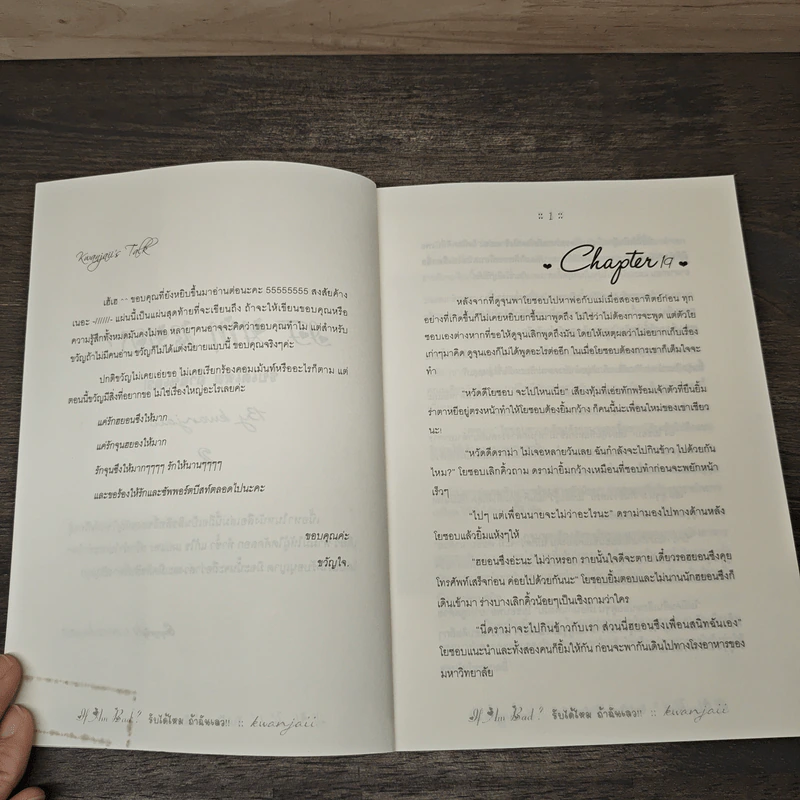 Kwanjaii's Talk
เฮ้เฮ -- ขอบคุณที่ยังหยิบขึ้นมาอ่านต่อนะคะ 55555555 สงสัยค้าง
เนอะ -//////- แผ่นนี้เป็นแผ่นสุดท้ายที่จะเขียนถึง ถ้าจะให้เขียนขอบคุณหรือ
ความรู้สึกทั้งหมดมันคงไม่พอ หลายๆคนอาจจะคิดว่าขอบคุณทำไม แต่สำหรับ
ขวัญถ้าไม่มีคนอ่าน ขวัญก็ไม่ได้แต่งนิยายแบบนี้ ขอบคุณจริงๆค่ะ
ปกติขวัญไม่เคยเอ่ยขอ ไม่เคยเรียกร้องคอมเม้นท์หรืออะไรก็ตาม แต่
ตอนนี้ขวัญมีสิ่งที่อยากขอ ไม่ใช่เรื่องใหญ่อะไรเลยค่ะ
แค่รักฮยอนซึงให้มาก
แค่รักจุนฮยองให้มาก
รักจุนซึงให้มากๆๆๆๆ รักให้นานๆๆๆๆ
และขอร้องให้รักและซัพพอร์ตบีสท์ตลอดไปนะคะ
ขอบคุณค่ะ
ขวัญใจ.
If I'm Bad? รับได้ไหม ถ้าฉันเลว!! :: kwanjaii
:: 1 ::
Chapter 19
หลังจากที่ดูจุนพาโยซอบไปหาพ่อกับแม่เมื่อสองอาทิตย์ก่อน ทุก
อย่างที่เกิดขึ้นก็ไม่เคยหยิบยกขึ้นมาพูดถึง ไม่ใช่ว่าไม่ต้องการจะพูด แต่ตัวโย
ซอบเองต่างหากที่ขอให้ดูจุนเลิกพูดถึงมัน โดยให้เหตุผลว่าไม่อยากเก็บเรื่อง
เก่าๆมาคิด ดูจุนเองก็ไม่ได้พูดอะไรต่ออีก ในเมื่อโยซอบต้องการเขาก็เต็มใจจะ
ทำ
“หวัดดีโยซอบ จะไปไหนเนี่ย” เสียงทุ้มที่เอ่ยทักพร้อมเจ้าตัวที่ยืนยิ้ม
ร่าตาหยีอยู่ตรงหน้าทำให้โยซอบต้องยิ้มกว้าง ก็คนนี้น่ะเพื่อนใหม่ของเขาเชียว
นะ!
“หวัดดีดราม่า ไม่เจอหลายวันเลย ฉันกำลังจะไปกินข้าว ไปด้วยกัน
ไหม?” โยซอบเลิกคิ้วถาม ดราม่ายิ้มกว้างเหมือนที่ชอบทำก่อนจะพยักหน้า
เร็วๆ
“ไปๆ แต่เพื่อนนายจะไม่ว่าอะไรนะ” ดราม่ามองไปทางด้านหลัง
โยซอบแล้วยิ้มแห้งๆให้
“ฮยอนซึงอ่ะนะ ไม่ว่าหรอก รายนั้นใจดีจะตาย เดี๋ยวรอฮยอนซึงคุย
โทรศัพท์เสร็จก่อน ค่อยไปด้วยกันนะ” โยซอบยิ้มตอบและไม่นานนักฮยอนซึงก็
เดินเข้ามา ร่างบางเลิกคิ้วน้อยๆเป็นเชิงถามว่าใคร
“นี่ดราม่าจะไปกินข้าวกับเรา ส่วนนี่ฮยอนซึงเพื่อนสนิทฉันเอง”
โยซอบแนะนำและทั้งสองคนก็ยิ้มให้กัน ก่อนจะพากันเดินไปทางโรงอาหารของ
มหาวิทยาลัย
If I'm Bad? รับได้ไหม ถ้าฉันเลว!! :: kwanjaii